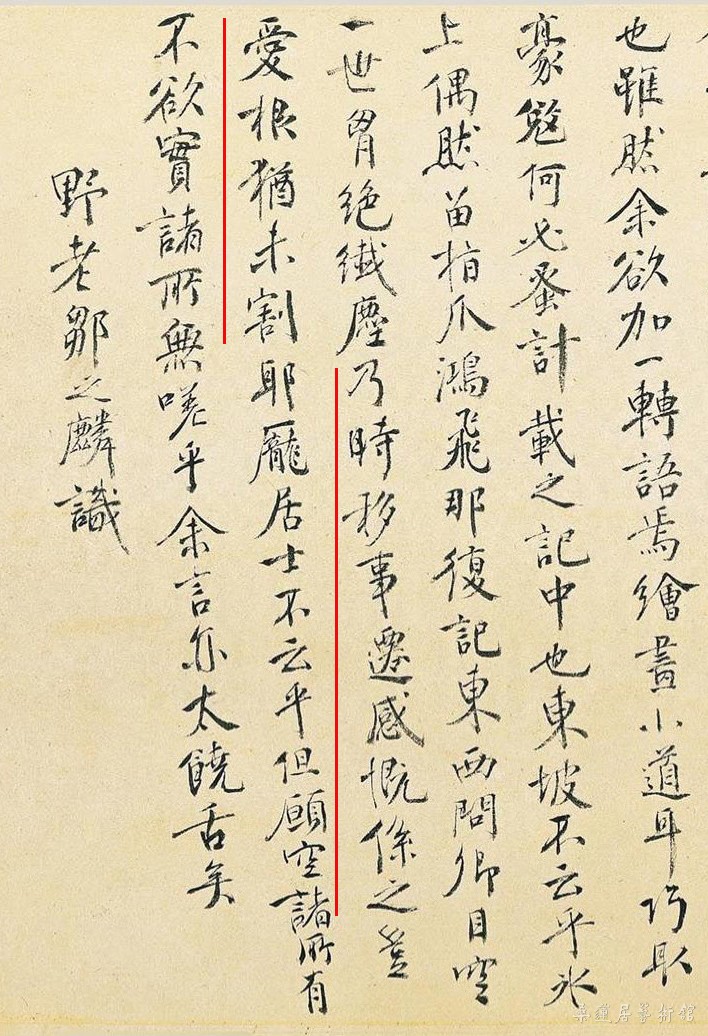 也雖然余欲加一轉語焉繪畫小道耳巧取
豪敚何必蚤計載之記中也東坡不云乎冰
上偶然留指爪鴻飛那復記東西問卿目空
一世胷絕纖塵乃時移事遷感慨係之豈
愛根猶未割耶龐居士不云乎但願空諸所有
不欲實諸所無嗟乎余言亦太饒舌矣
野老鄒之麟識
蓮居藝術館